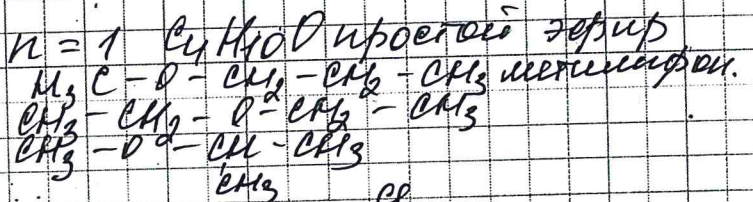 n = 1 C4H10O простой эфир
H3C - O - CH2 - CH2 - CH3
CH3 - CH2 - O - CH2 - CH3
CH3 - O - CH - CH3
CH3